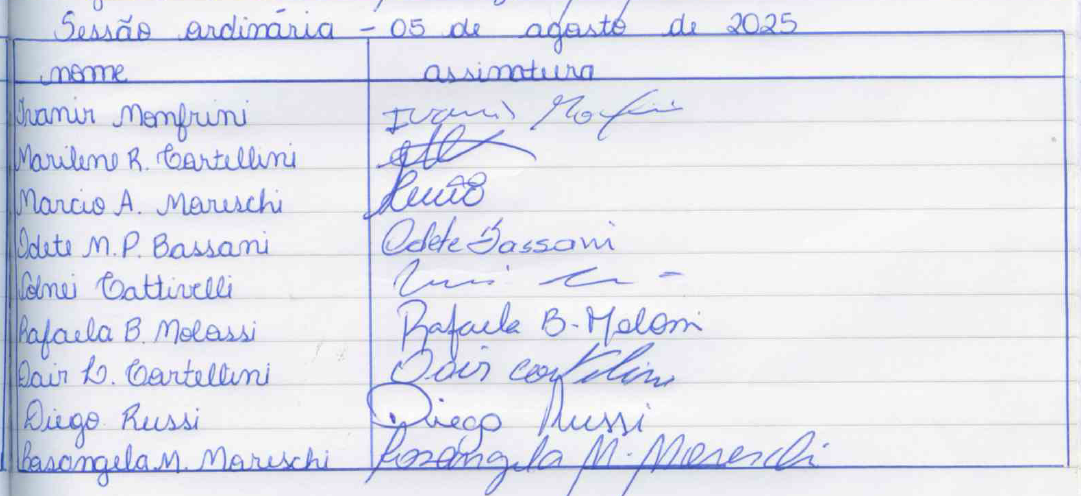 Sessão ordinária - 05 de agosto de 2025
nome assinatura
Ivanir Monfrini Ivanir
Marilene R. Cartellini
Marcio A. Mareschi
Odete M.P. Bassani Odete Bassani
Volnei Cattivelli
Rafaela B. Molossi Rafaela B. Molossi
Odair L. Cartellini Odair Cartellini
Diego Russi Diego Russi
Rosangela M. Mareschi Rosangela M. Mareschi